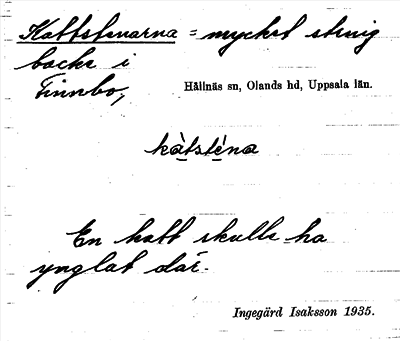 Kattstenarna = mycket stenig
backe i
Finnbo,
Hållnäs sn, Olands hd, Uppsala län.
kàtsténa
En katt skulle ha
ynglat där.
Ingegärd Isaksson 1935.